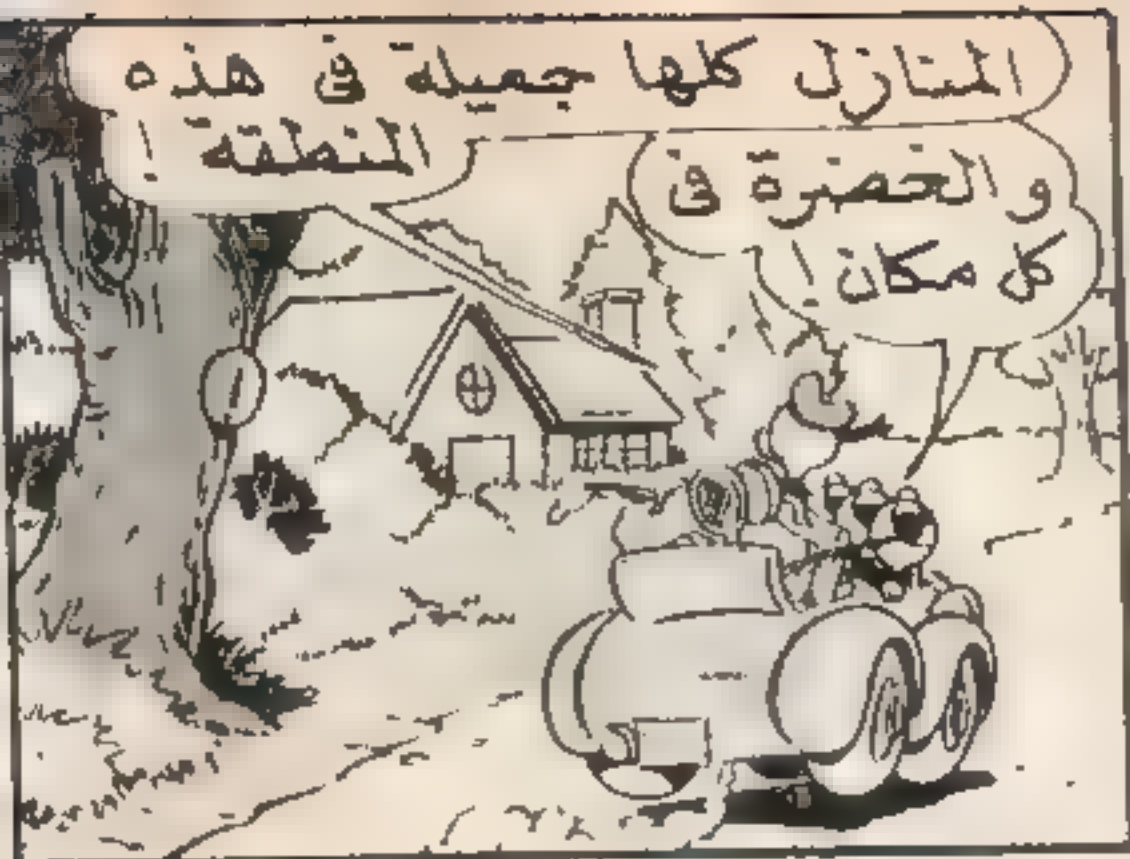 المنازل كلها جميلة فى هذه
المنطقة !
و الخضرة فى
كل مكان !